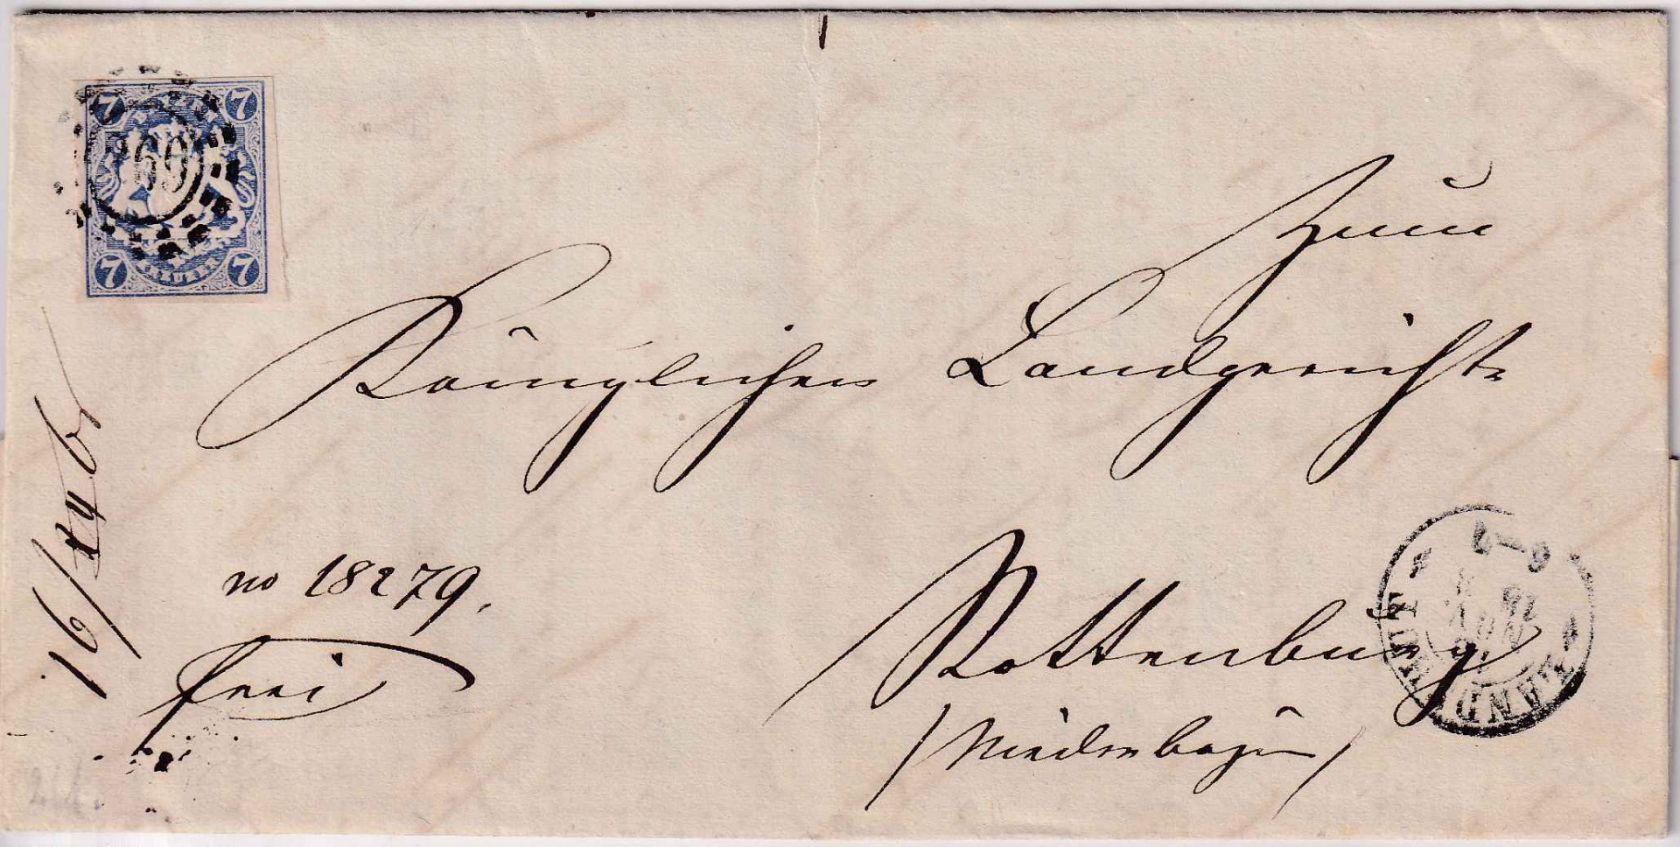 7 7
7 7
KREUZER
Zum
Königlichen Landgericht
Rottenburg.
/Niederbayern/
no 18279.
frei
16/
LANDSHUT